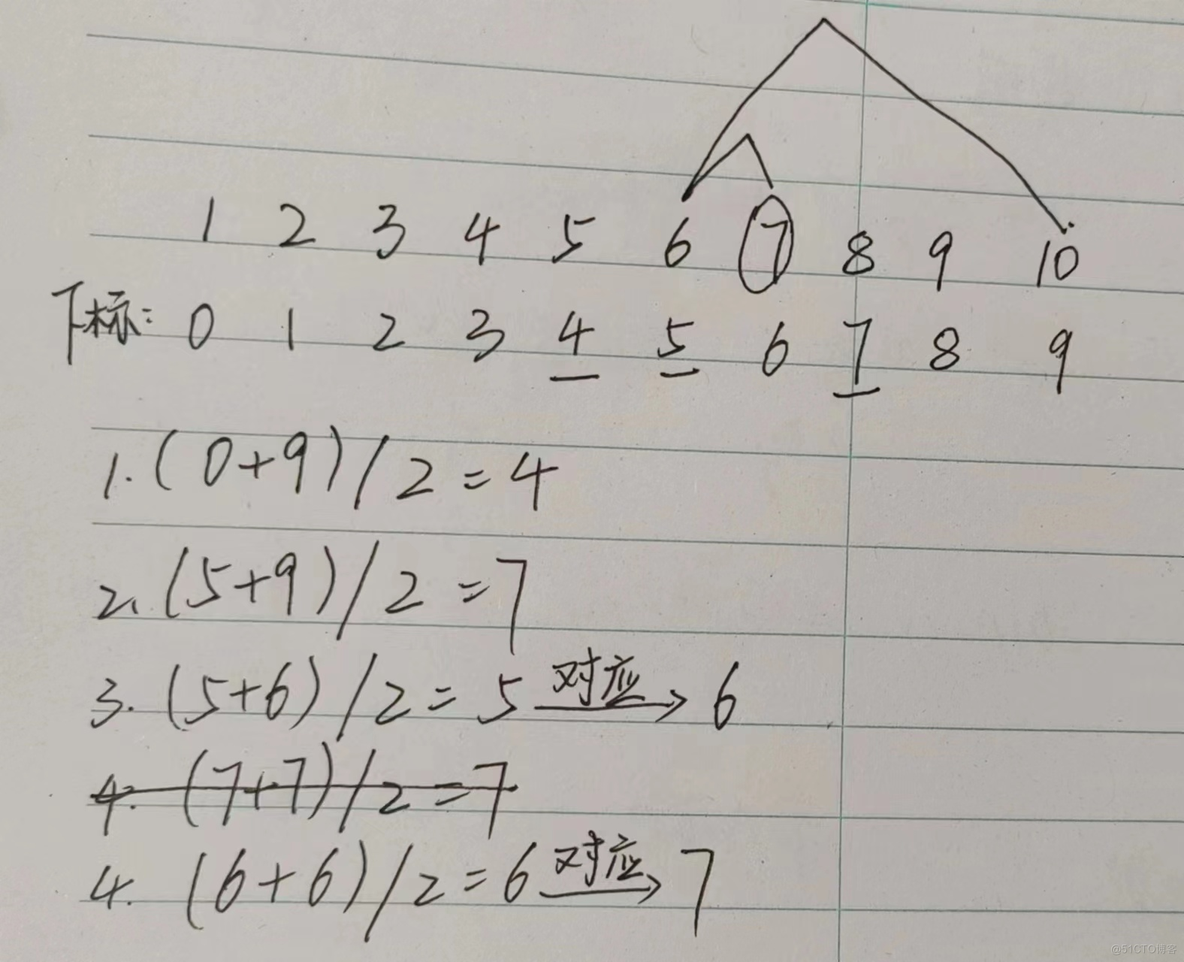 1 2 3 4 5 6 7 8 9 10
下标: 0 1 2 3 4 5 6 7 8 9
1. (0+9)/2=4
2. (5+9)/2=7
3. (5+6)/2=5 对应→ 6
4. (7+7)/2=7
4. (6+6)/2=6 对应→ 7
@51CTO博客